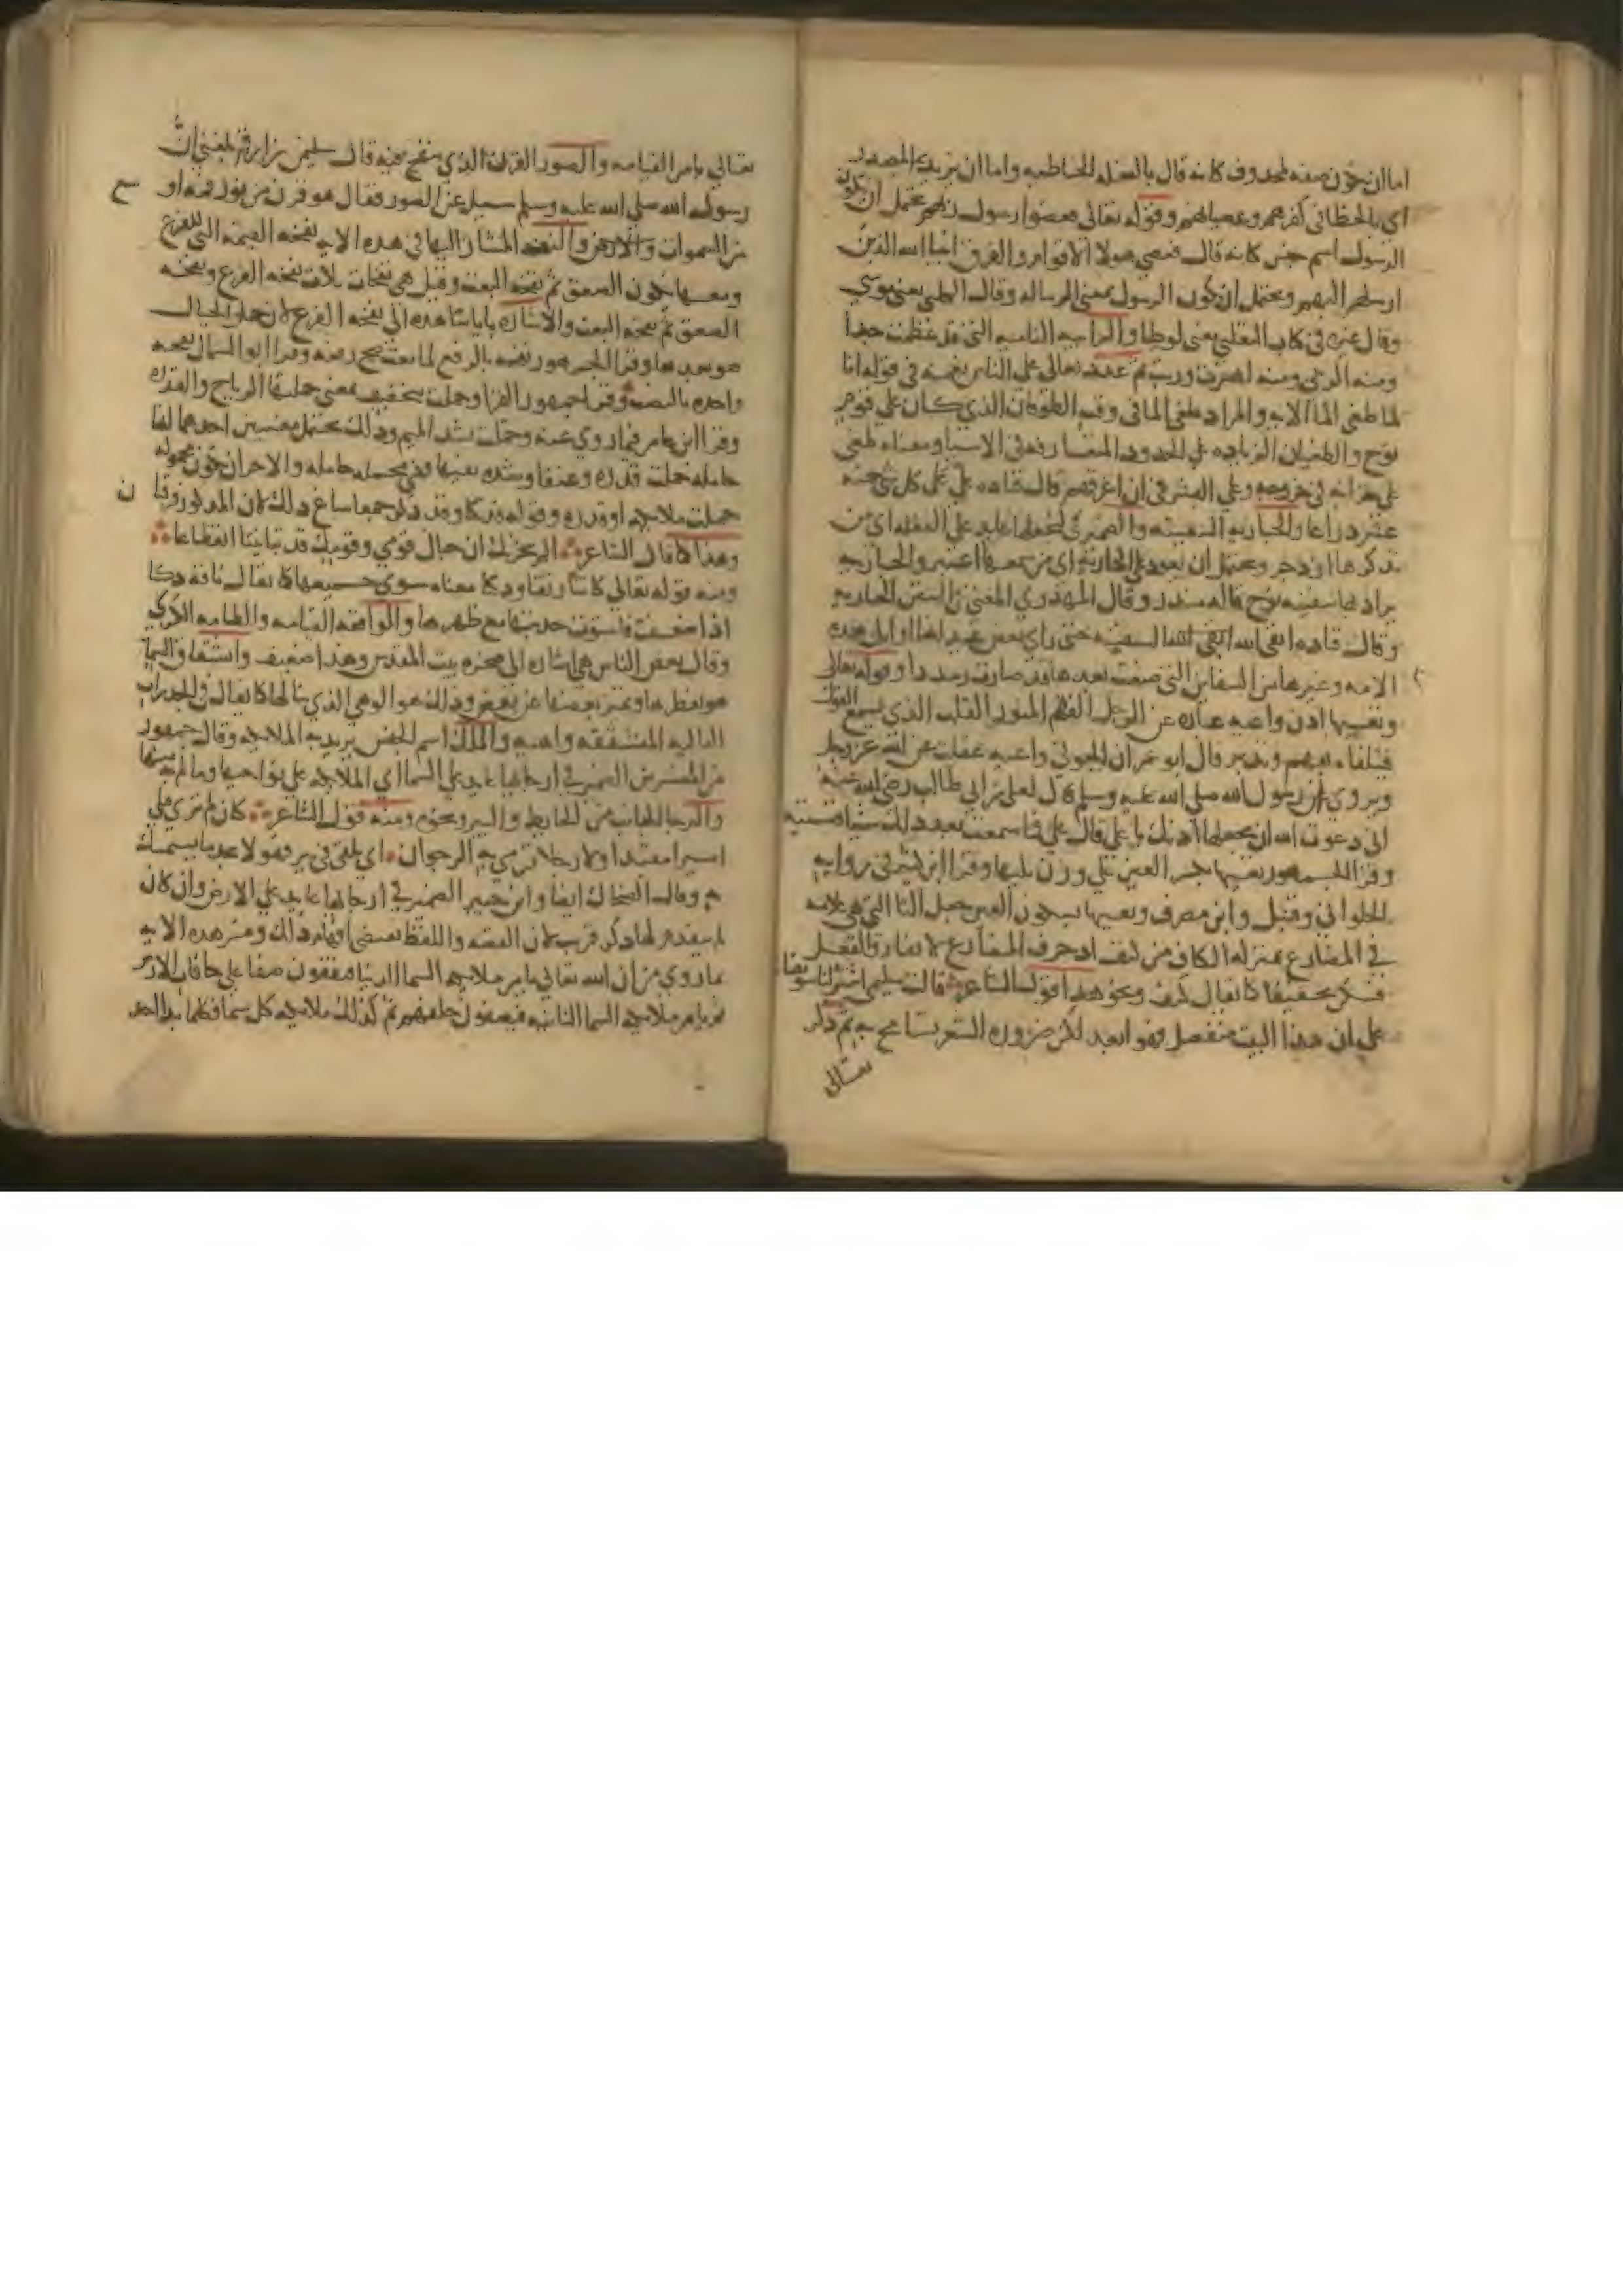 اما ان يكون صفة لمحذوف كانه قال بالفعلة الخاطية واما ان يريد المصدر
اي بالخطا في كفرهم وعصيانهم وقوله تعالى فعصوا رسول ربهم يحتمل ان يكون
الرسول اسم جنس كانه قال فعصى هولا الاقوام والفرق انبيا الله الذين
ارسلهم اليهم ويحتمل ان يكون الرسول بمعنى الرسالة وقال الكلبي يعني موسى
وقال غيره في كتاب الثعلبي يعني لوطا والرابية النامية التي قد عظمت جدا
ومنه الربى ومنه اهتزت وربت ثم عدد تعالى على الناس نعمه في قوله انا
لما طغى الما الاية والمراد طغى الما في وقت الطوفان الذي كان على قوم
نوح والطغيان الزيادة على الحدود المتعارفة في الاشيا ومعناه طغى
على خزانه في خروجه وعلى البشر في ان اغرقهم قال قتادة علا على كل شي خمسة
عشر ذراعا والجارية السفينة والضمير في لنجعلها عايد على الفعلة اي من
تذكرها ازدجر ويحتمل ان يعود على الجارية اي من سمعها اعتبر والجارية
يراد بها سفينة نوح قاله منذر وقال المهدوي المعني في السفن الجارية
وقال قتادة ابقى الله تلك السفينة حتى راى بعض عيدانها اوايل هذه
الامة وغيرها من السفاين التي صنعت بعدها قد صارت رمددا وقوله تعالى
وتعيها اذن واعية عبارة عن الرجل الفهم المنور القلب الذي يسمع القول
فيتلقاه بفهم وتدبر قال ابو عمران الجوني واعية عقلت عن الله عز وجل
ويروى ان رسول الله صلى الله عليه وسلم قال لعلي بن ابي طالب رضي الله عنه
اني دعوت الله ان يجعلها اذنك يا علي قال علي فما سمعت بعد ذلك شيا فنسيته
وقرا الجمهور تعيها بكسر العين على وزن تليها وقرا ابن كثير في رواية
الحلواني وقنبل وابن مصرف وتعيها بسكون العين جعل التا التي هي علامة
في المضارع بمنزلة الكاف من كتف اذ حرف المضارع لا يفارق الفعل
فسكن تخفيفا كما يقال كتف ونحو هذا قول الشاعر قالت سليمى اشتر لنا سويقا
على ان هذا البيت منفصل فهو ابعد لكن ضرورة الشعر تسامح به ثم ذكر
تعالى
تعالى بامر القيامة والصور القرن الذي ينفخ فيه قال سليمن بن ارقم بلغني ان
رسول الله صلى الله عليه وسلم سيل عن الصور فقال هو قرن من نور فمه او
من السموات والارض والنفخة المشار اليها في هذه الاية نفخة القيمة التي للفزع
ومعها يكون الصعق ثم نفخة البعث وقيل هي نفخات ثلاث نفخة الفزع ونفخة
الصعق ثم نفخة البعث والاشارة باياتنا هذه الى نفخة الفزع لان حمل الجبال
هو بعدها وقرا الجمهور نفخة بالرفع لما نعت صح رفعه وقرا ابو السمال نفخة
واحدة بالنصب وقرا جمهور القرا وحملت بتخفيف بمعنى حملتها الرياح والقدرة
وقرا ابن عامر فيما روي عنه وحملت بشد الميم وذلك يحتمل معنيين احدهما انها
حاملة حملت قدرة وعنفا وشدة نفثها فهي محملة حاملة والاخر ان يكون محمولة
حملت ملايكة او قدرة وقوله فدكتا وقد ذكر جمعا ساغ ذلك لان المذكور فرقتان
وهذا كما قال الشاعر الم يحزنك ان حبال قومي وقومك قد تباينتا انقطاعا
ومنه قوله تعالى كانتا رتقا ودكتا معناه سوى جميعها كما يقال ناقة دكا
اذا ضعفت فاستوت حدبتها مع ظهرها والواقعة القيامة والطامة الكبرى
وقال بعض الناس هي اشارة الى صخرة بيت المقدس وهذا ضعيف وانشقاق السما
هو تفطرها وتميز بعضها عن بعض وذلك هو الوهي الذي ينالها كما يقال في الجدرات
البالية المتشققة واهية والملك اسم الجنس يريد به الملايكة وقال جمهور
من المفسرين الضمير في ارجايها عايد على السما اي الملايكة على نواحيها وما لم يه منها
والرجا الجانب من الحايط والبير ونحوه ومنه قول الشاعر كان لم تري قبلي
اسيرا مقيدا ولا رجلا ترمي به الرجوان اي يلقى في بير فهو لا يجد ما يستمسك
به وقال الضحاك ايضا وابن جبير الضمير في ارجايها عايد على الارض وان كان
لم يتقدم لها ذكر قريب لان القصة واللفظ يقتضي افهام ذلك وفسر هذه الاية
بما روي من ان الله تعالى يامر ملايكة السما الدنيا فيقفون صفا على حافات الارض
ثم يامر ملايكة السما الثانية فيصفون خلفهم ثم كذلك ملايكة كل سما فكلما ند احد